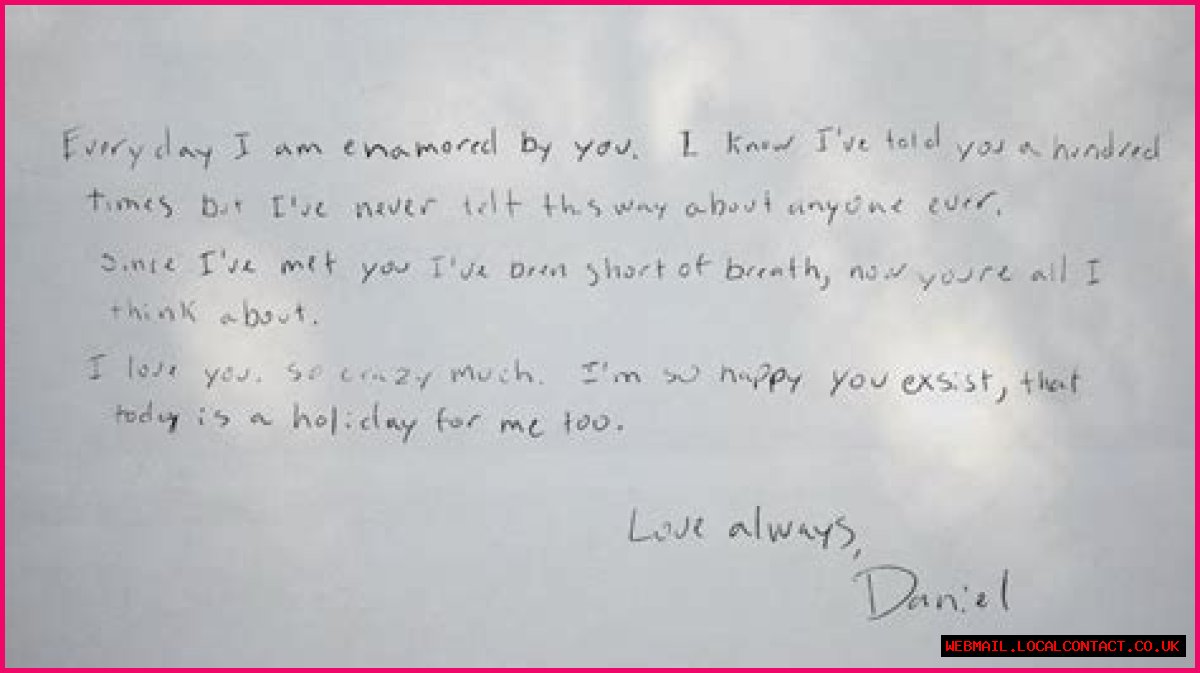 Everyday I am enamored by you. I know I've told you a hundred
times but I've never felt this way about anyone ever.
Since I've met you I've been short of breath, now you're all I
think about.
I love you. so crazy much. I'm so happy you exsist, that
today is a holiday for me too.
Love always,
Daniel
WEBMAIL.LOCALCONTACT.CO.UK